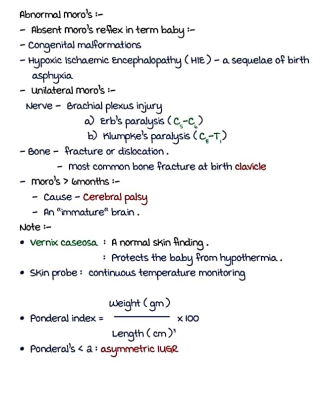 Abnormal moro's :-
- Absent moro's reflex in term baby :-
- Congenital malformations
- Hypoxic Ischaemic Encephalopathy (HIE) - a sequelae of birth
asphyxia
- Unilateral moro's :-
Nerve - Brachial plexus injury
a) Erb's paralysis (C5-C6)
b) Klumpke's paralysis (C8-T1)
- Bone - fracture or dislocation.
- most common bone fracture at birth clavicle
- moro's > 6months :-
- Cause - Cerebral palsy
- An "immature" brain.
Note :-
• Vernix caseosa : A normal skin finding.
: Protects the baby from hypothermia.
• Skin probe : continuous temperature monitoring
Weight (gm)
• Ponderal index = ——— x 100
Length (cm)³
• Ponderal's < 2 : asymmetric IUGR